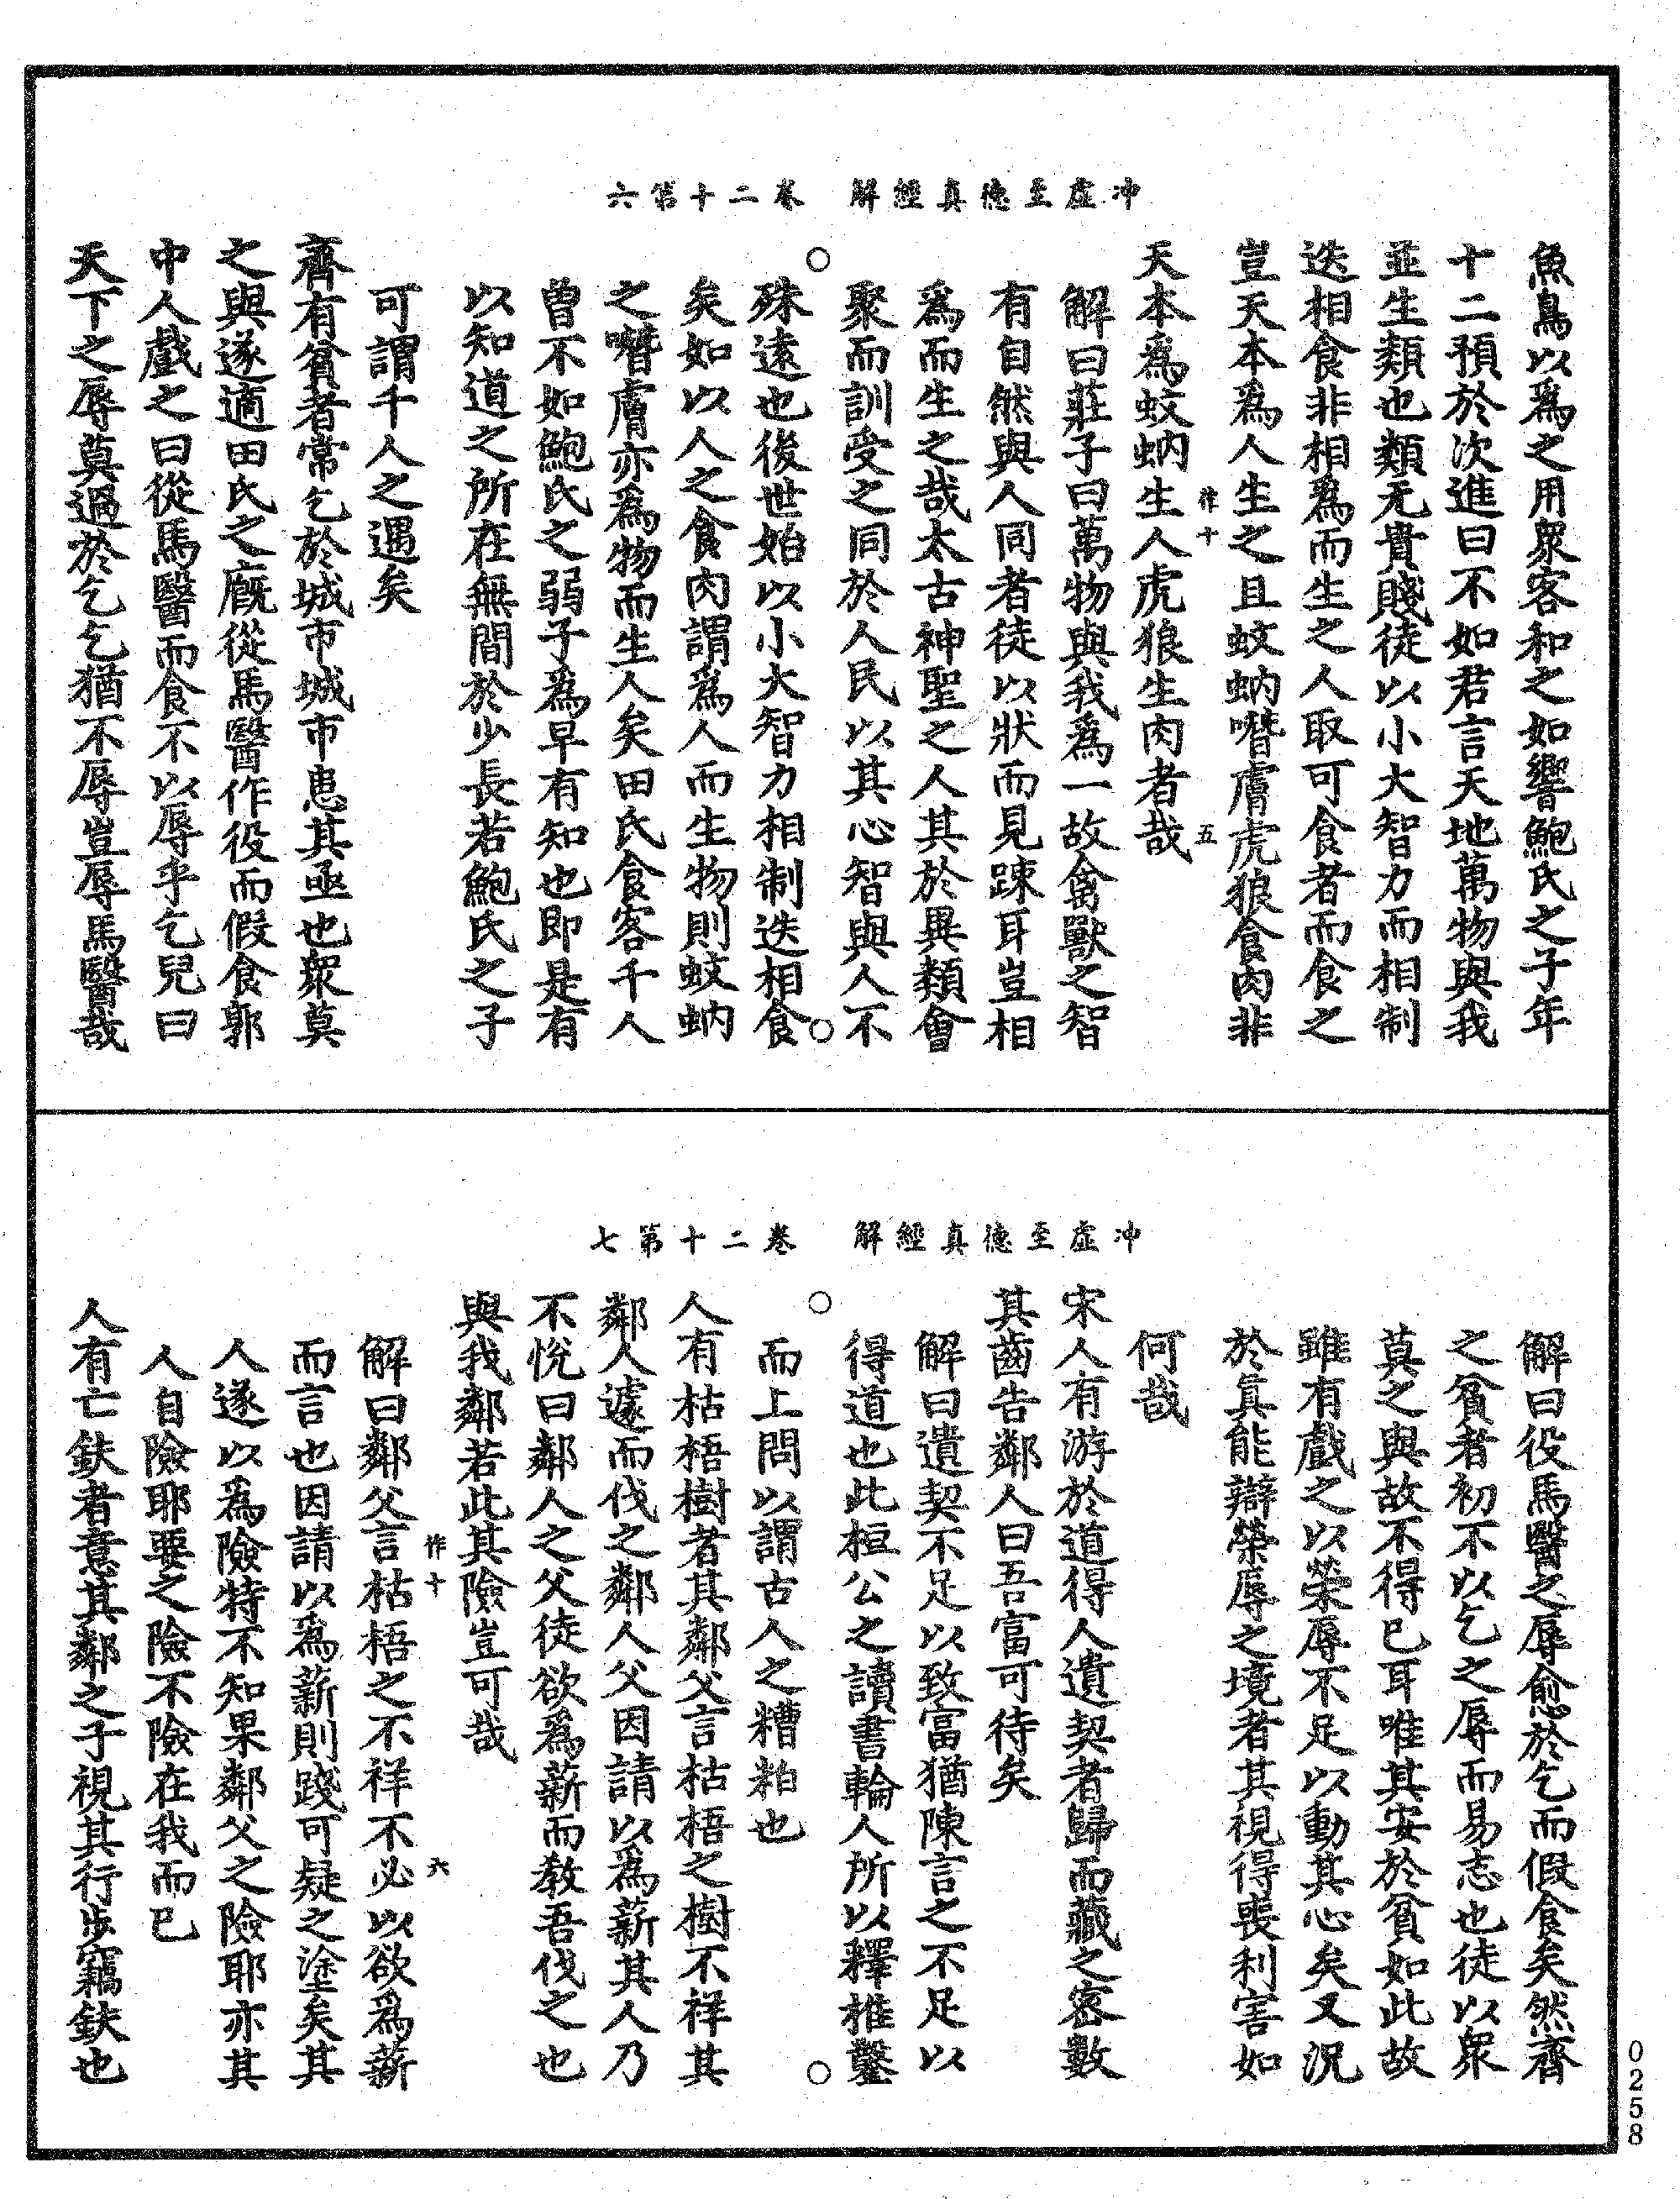 冲虛至德真經解　卷二十第六
魚鳥以爲之用衆客和之如響鮑氏之子年
十二預於次進曰不如君言天地萬物與我
並生類也類无貴賤徒以小大智力而相制
迭相食非相爲而生之人取可食者而食之
豈天本爲人生之且蚊蚋噆膚虎狼食肉非
天本爲蚊蚋生人虎狼生肉者哉
作十　五
解曰莊子曰萬物與我爲一故禽獸之智
有自然與人同者徒以狀而見踈耳豈相
爲而生之哉太古神聖之人其於異類會
聚而訓受之同於人民以其心智與人不
殊遠也後世始以小大智力相制迭相食
矣如以人之食肉謂爲人而生物則蚊蚋
之噆膚亦爲物而生人矣田氏食客千人
曾不如鮑氏之弱子爲早有知也即是有
以知道之所在無間於少長若鮑氏之子
可謂千人之遇矣
齊有貧者常乞於城市城市患其亟也衆莫
之與遂適田氏之廐從馬醫作役而假食郭
中人戲之曰從馬醫而食不以辱乎乞兒曰
天下之辱莫過於乞乞猶不辱豈辱馬醫哉
冲虛至德真經解　卷二十第七
解曰役馬醫之辱愈於乞而假食矣然齊
之貧者初不以乞之辱而易志也徒以衆
莫之與故不得已耳唯其安於貧如此故
雖有戲之以榮辱不足以動其心矣又況
於真能辯榮辱之境者其視得喪利害如
何哉
宋人有游於道得人遺契者歸而藏之密數
其齒告鄰人曰吾富可待矣
解曰遺契不足以致富猶陳言之不足以
得道也此桓公之讀書輪人所以釋椎鑿
而上問以謂古人之糟粕也
人有枯梧樹者其鄰父言枯梧之樹不祥其
鄰人遽而伐之鄰人父因請以爲薪其人乃
不悅曰鄰人之父徒欲爲薪而教吾伐之也
與我鄰若此其險豈可哉
作十　六
解曰鄰父言枯梧之不祥不必以欲爲薪
而言也因請以爲薪則踐可疑之塗矣其
人遂以爲險特不知果鄰父之險耶亦其
人自險耶要之險不險在我而已
人有亡鈇者意其鄰之子視其行步竊鈇也
0258